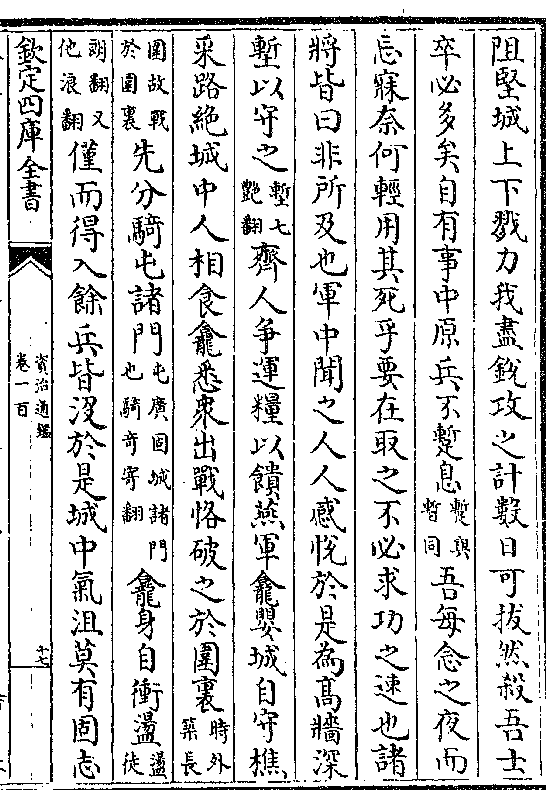 阻堅城上下戮力我盡銳攻之計數日可拔然殺吾士
卒必多矣自有事中原兵不蹔息
蹔與
暫同
吾每念之夜而
忘寐奈何輕用其死乎要在取之不必求功之速也諸
將皆曰非所及也軍中聞之人人感悅於是為髙牆深
塹以守之
塹七
艶翻
齊人争運糧以饋燕軍龕嬰城自守樵
采路絶城中人相食龕悉衆出戰恪破之於圍裏
時外
築長
圍故戰
於圍裏
先分騎屯諸門
屯廣固城諸門
也騎奇寄翻
龕身自衝盪
盪徒
朗翻又
他浪翻
僅而得入餘兵皆没於是城中氣沮莫有固志
欽定四庫全書
資治通鑑
卷一百
十七